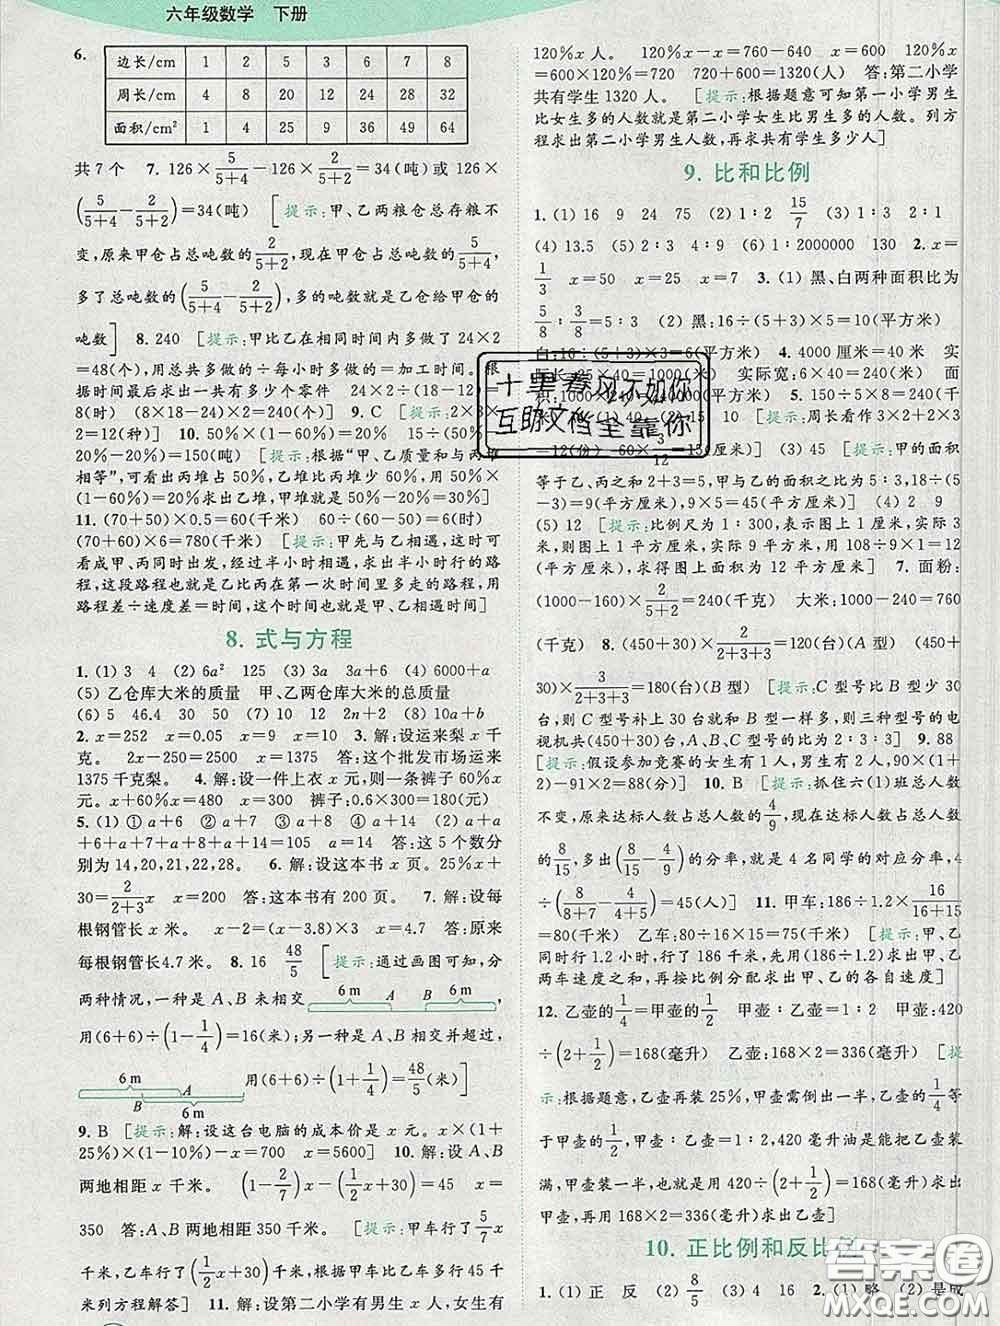 六年级数学 下册
6.
边长/cm 1 2 5 3 6 7 8
周长/cm 4 8 20 12 24 28 32
面积/cm² 1 4 25 9 36 49 64
共7个 7. 126×5/(5+4)-126×2/(5+2)=34(吨)或 126×
(5/(5+4)-2/(5+2))=34(吨) [提示:甲、乙两粮仓总存粮不
变,原来甲仓占总吨数的2/(5+2),现在甲仓占总吨数的5/(5+4),
多了总吨数的(5/(5+4)-2/(5+2)),多的吨数就是乙仓给甲仓的
吨数] 8. 240 [提示:甲比乙在相同时间内多做了 24×2
=48(个),用总共多做的÷每小时多做的=加工时间。根
据时间最后求出一共有多少个零件 24×2÷(18-12)=
8(时) (8×18-24)×2=240(个)] 9. C [提示:2×3×2
=12(种)] 10. 50%÷(1+50%)=20% 15÷(50%-
20%-20%)=150(吨) [提示:根据“甲、乙质量和与丙堆
相等”,可知丙堆占 50%,乙堆比丙堆少 60%,用 50%×
(1-60%)=20%求出乙堆,甲堆=50%-20%=30%]
11. (70+50)×0.5=60(千米) 60÷(60-50)=6(时)
(70+60)×6=780(千米) [提示:甲先与乙相遇,这时可
看成甲、丙同时出发,经过半小时相遇,求出半小时行的路
程,这段路程也就是乙比丙在第一次时间里多走的路程,用
路程差÷速度差=时间,这个时间也就是甲、乙相遇时间]
8. 式与方程
1. (1) 3 4 (2) 6a² 125 (3) 3a 3a+6 (4) 6000+a
(5) 乙仓库大米的质量 甲、乙两仓库大米的总质量
(6) 5 46.4 30 50 (7) 10 12 2n+2 (8) 10a+b
2. x=252 x=0.05 x=9 x=10 3. 解:设运来梨 x 千
克。 2x-250=2500 x=1375 答:这个批发市场运来
1375 千克梨。 4. 解:设一件上衣 x 元,则一条裤子 60%x
元。 x+60%x=480 x=300 裤子:0.6×300=180(元)
5. (1) ① a+6 ② a+7 ③ a+8 ④ a+14 (2) a+a
+6+a+7+a+8+a+14=105 a=14 答:这 5 个数分
别为 14,20,21,22,28。 6. 解:设这本书 x 页。25%x+
30=2/(2+3)x x=200 答:这本书有 200 页。 7. 解:设每
根钢管长 x 米。 x-2=(x-3.8)×3 x=4.7 答:原来
每根钢管长4.7 米。 8. 16 48/5 [提示:通过画图可知,分
两种情况,一种是 A、B 未相交 6 m A B 6 m ,
用(6+6)÷(1-1/4)=16(米);另一种是 A、B 相交并超过,
6 m A B 6 m 用(6+6)÷(1+1/4)=48/5(米)]
9. B [提示:解:设这台电脑的成本价是 x 元。x×(1+
25%)×(1-10%)-x=700 x=5600] 10. 解:设 A、B
两地相距 x 千米。 (1-2/7)x-(1/2x+30)=45 x=
350 答:A、B 两地相距 350 千米。 [提示:甲车行了5/7x
千米,乙车行了(1/2x+30)千米,根据甲车比乙车多行 45 千
米列方程解答] 11. 解:设第二小学有男生 x 人,女生有
120%x 人。 120%x-x=760-640 x=600 600×
120%=720 720+600=1320(人) 答:第二小学
共有学生 1320 人。 [提示:根据题意可知第一小学男生
比女生多的人数就是第二小学女生比男生多的人数。列方
程求出第二小学男生人数,再求共有学生多少人]
9. 比和比例
1. (1) 16 9 24 75 (2) 1∶2 15/7 (3) 1∶2 2∶1
(4) 13.5 (5) 2∶3 4∶9 (6) 1∶2000000 130 2. x=
1/3 x=50 x=25 x=7 3. (1) 黑、白两种面积比为
5/8∶3/8=5∶3 (2) 黑:16÷(5+3)×5=10(平方米)
白:16÷(5+3)×3=6(平方米) 4. 4000 厘米=40 米 实
际长:25×40=1000(米) 实际宽:
12(份) 60×3/12=15] (3) 45 [提示:甲的面积
等于乙、丙之和 2+3=5,甲与乙的面积之比为 5∶2,18÷(5
-3)=9(平方厘米),9×5=45(平方厘米)] (4) 2 9
(5) 12 [提示:比例尺为 1∶300,表示图上 1 厘米,实际 3
米,图上 1 平方厘米,实际 9 平方米,用 108÷9÷1=12(平
方厘米),求得图上面积为 12 平方厘米] 7. 面粉:
(1000-160)×2/(5+2)=240(千克) 大米:1000-240=
(千克) 8. (450+30)×2/(2+3+3)=120(台)(A 型) (450+
30)×3/(2+3+3)=180(台)(B 型) [提示:C 型号比 B 型少 30
台,则 C 型号补上 30 台就和 B 型一样多,则三种型号的电
视机共(450+30)台,A、B、C 型号为 2∶3∶3] 9. 88
[提示:假设参加竞赛的女生有 1 人,男生有 2 人,90×(1+
2)-91×2=88(分)] 10. B [提示:抓住六(1)班总人数
不变,原来达标人数占总人数的4/9,现在达标人数占总人数
的8/15,多出(8/15-4/9)的分率,就是 4 名同学的对应分率,4
÷(8/(8+7)-4/(4+5))=45(人)] 11. 甲车:186÷1.2×16/(16+15)
=80(千米) 乙车:80÷16×15=75(千米) [提示:甲、乙
同时行 1.2 小时,行了 186 千米,先用(186÷1.2)求出甲、乙
两车速度之和,再按比例分配求出甲、乙的各自速度]
12. 乙壶的1/4=甲壶的1/2 乙壶=甲壶×2 甲壶:420
÷(2+1/2)=168(毫升) 乙壶:168×2=336(毫升) [提
示:根据题意,乙壶再装 25%,甲壶需倒出一半,乙壶的1/4等
于甲壶的1/2,甲壶∶乙壶=1∶2,420 毫升油是能把乙壶装
满,甲壶还可装一半,也就是用 420÷(2+1/2)=168(毫升)求出
甲壶,再用 168×2=336(毫升)求出乙壶]
10. 正比例和反比例
1. (1) 正 反 (2) 8/5 (3) 4 16 2. (1) 略 (2) 是成
十里春风不如你
互助文档全靠你
答案圈
MXQE.COM